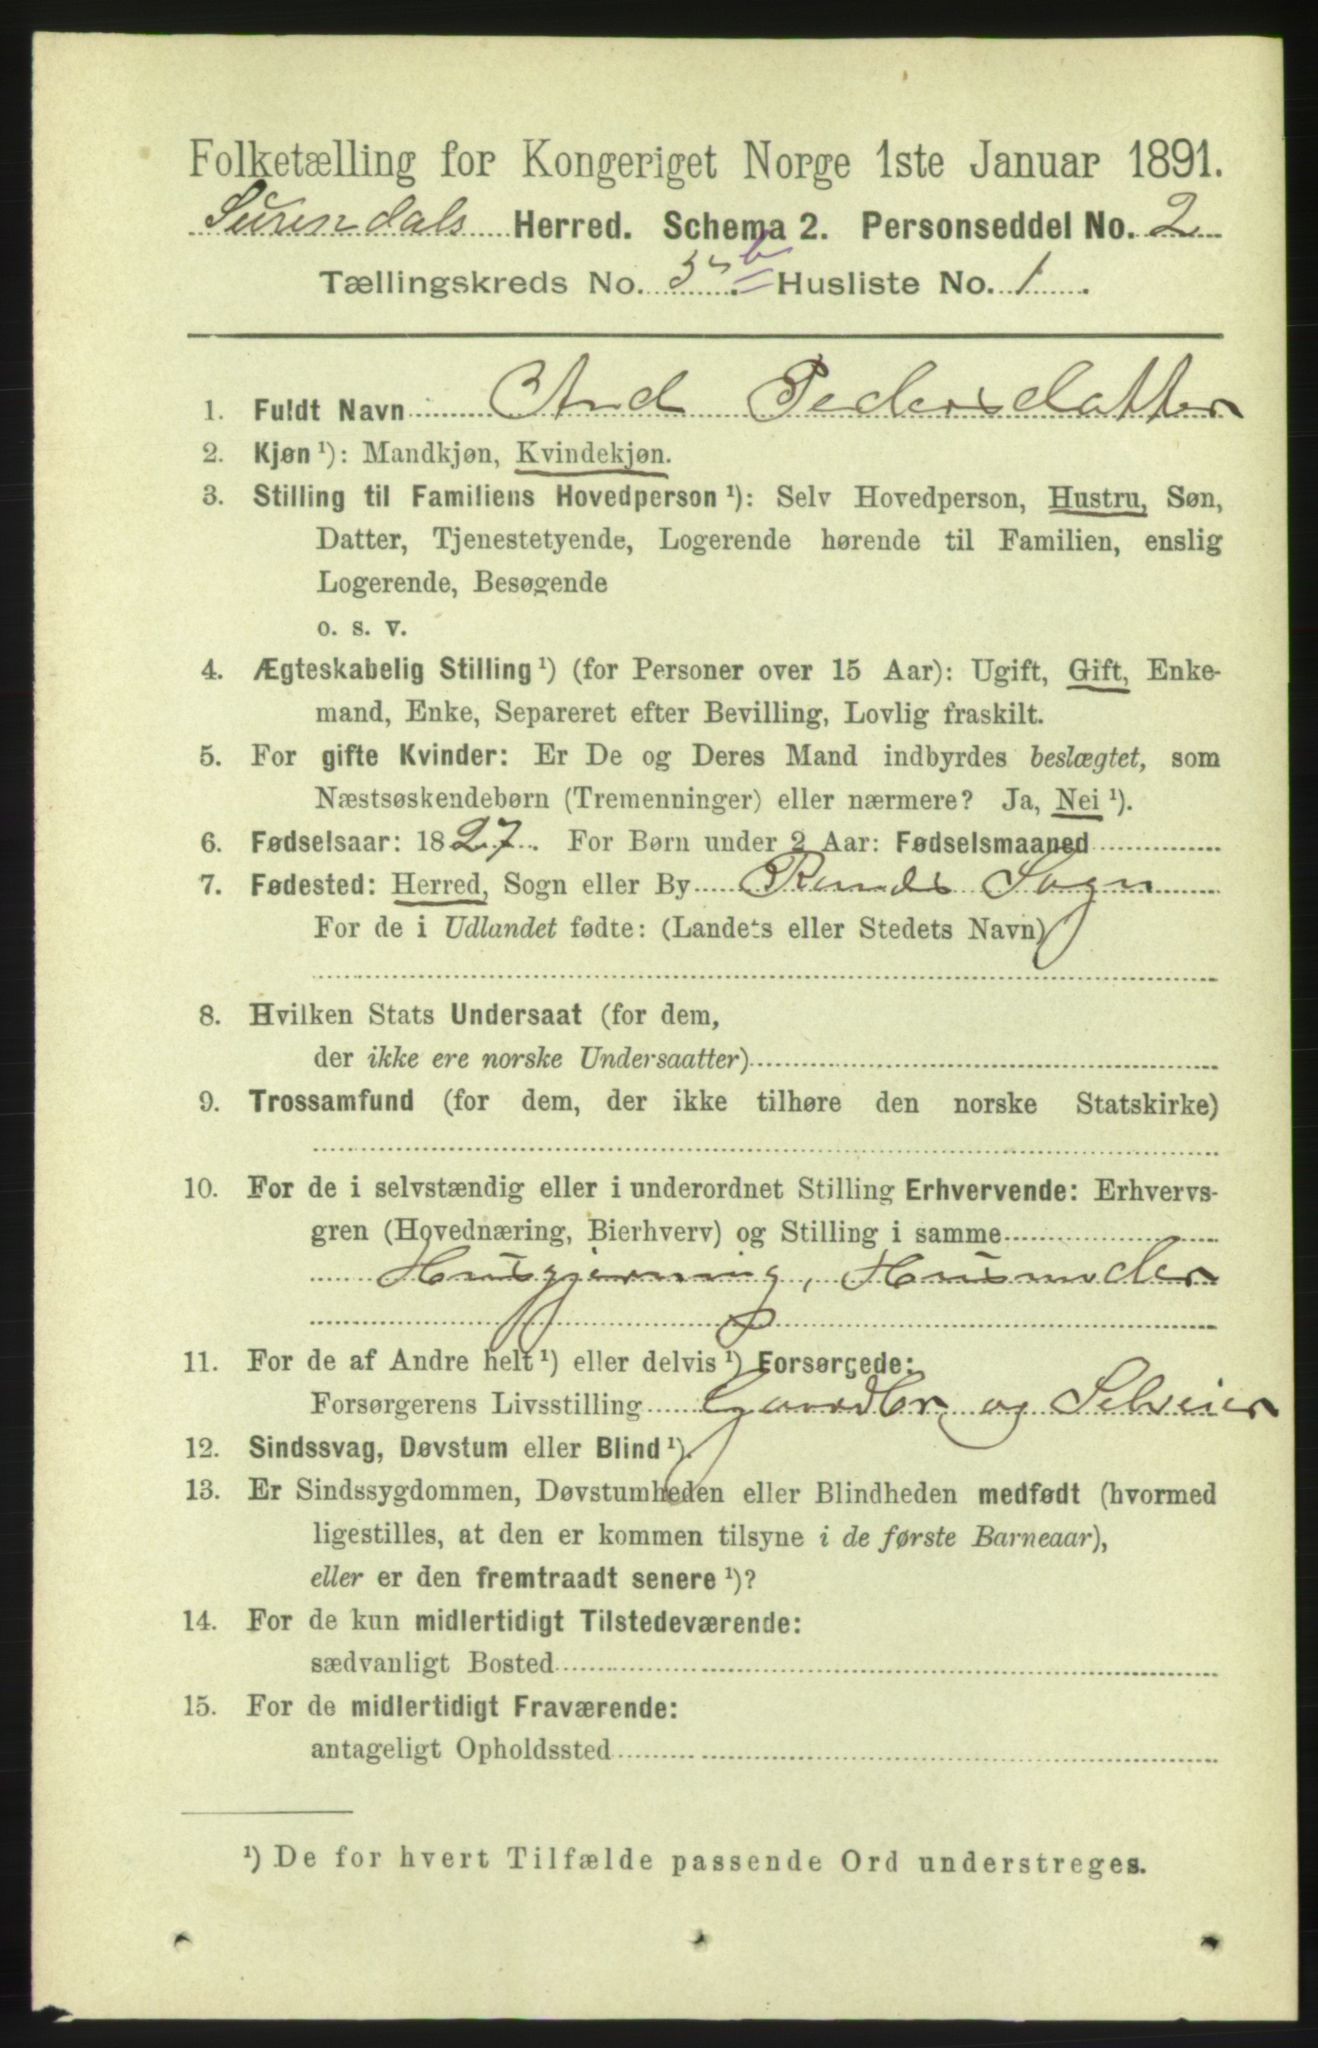 Folketælling for Kongeriget Norge 1ste Januar 1891.
Surendals Herred. Schema 2. Personseddel No. 2
Tællingskreds No. 5 b Husliste No. 1.
1. Fuldt Navn And Pedersdatter
2. Kjøn ¹): Mandkjøn, Kvindekjøn.
3. Stilling til Familiens Hovedperson ¹): Selv Hovedperson, Hustru, Søn,
Datter, Tjenestetyende, Logerende hørende til Familien, enslig
Logerende, Besøgende
o. s. v.
4. Ægteskabelig Stilling ¹) (for Personer over 15 Aar): Ugift, Gift, Enke-
mand, Enke, Separeret efter Bevilling, Lovlig fraskilt.
5. For gifte Kvinder: Er De og Deres Mand indbyrdes beslægtet, som
Næstsøskendebørn (Tremenninger) eller nærmere? Ja, Nei ¹).
6. Fødselsaar: 1827. For Børn under 2 Aar: Fødselsmaaned
7. Fødested: Herred, Sogn eller By Rinds Sogn
For de i Udlandet fødte: (Landets eller Stedets Navn)
8. Hvilken Stats Undersaat (for dem,
der ikke ere norske Undersaatter)
9. Trossamfund (for dem, der ikke tilhøre den norske Statskirke)
10. For de i selvstændig eller i underordnet Stilling Erhvervende: Erhvervs-
gren (Hovednæring, Bierhverv) og Stilling i samme
Husgjerning, Husmoder
11. For de af Andre helt ¹) eller delvis ¹) Forsørgede:
Forsørgerens Livsstilling Gaardbr og Selveier
12. Sindssvag, Døvstum eller Blind ¹).
13. Er Sindssygdommen, Døvstumheden eller Blindheden medfødt (hvormed
ligestilles, at den er kommen tilsyne i de første Barneaar),
eller er den fremtraadt senere ¹)?
14. For de kun midlertidigt Tilstedeværende:
sædvanligt Bosted
15. For de midlertidigt Fraværende:
antageligt Opholdssted
¹) De for hvert Tilfælde passende Ord understreges.